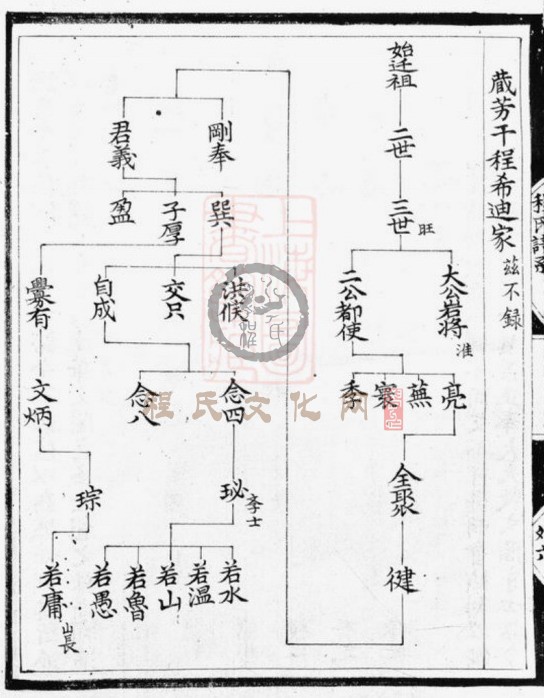 蕆芳干程希迪家
茲不録
始迁祖
二世
三世
旺
大公岩将
淮
二公都使
亮
蕪
寰
季
全聚
健
剛奉
君義
巽
子厚
盈
洪候
交只
自成
爨有
念四
念八
文炳
珌
李士
琮
若水
若溫
若山
若魯
若愚
若庸
山長
程氏文化网